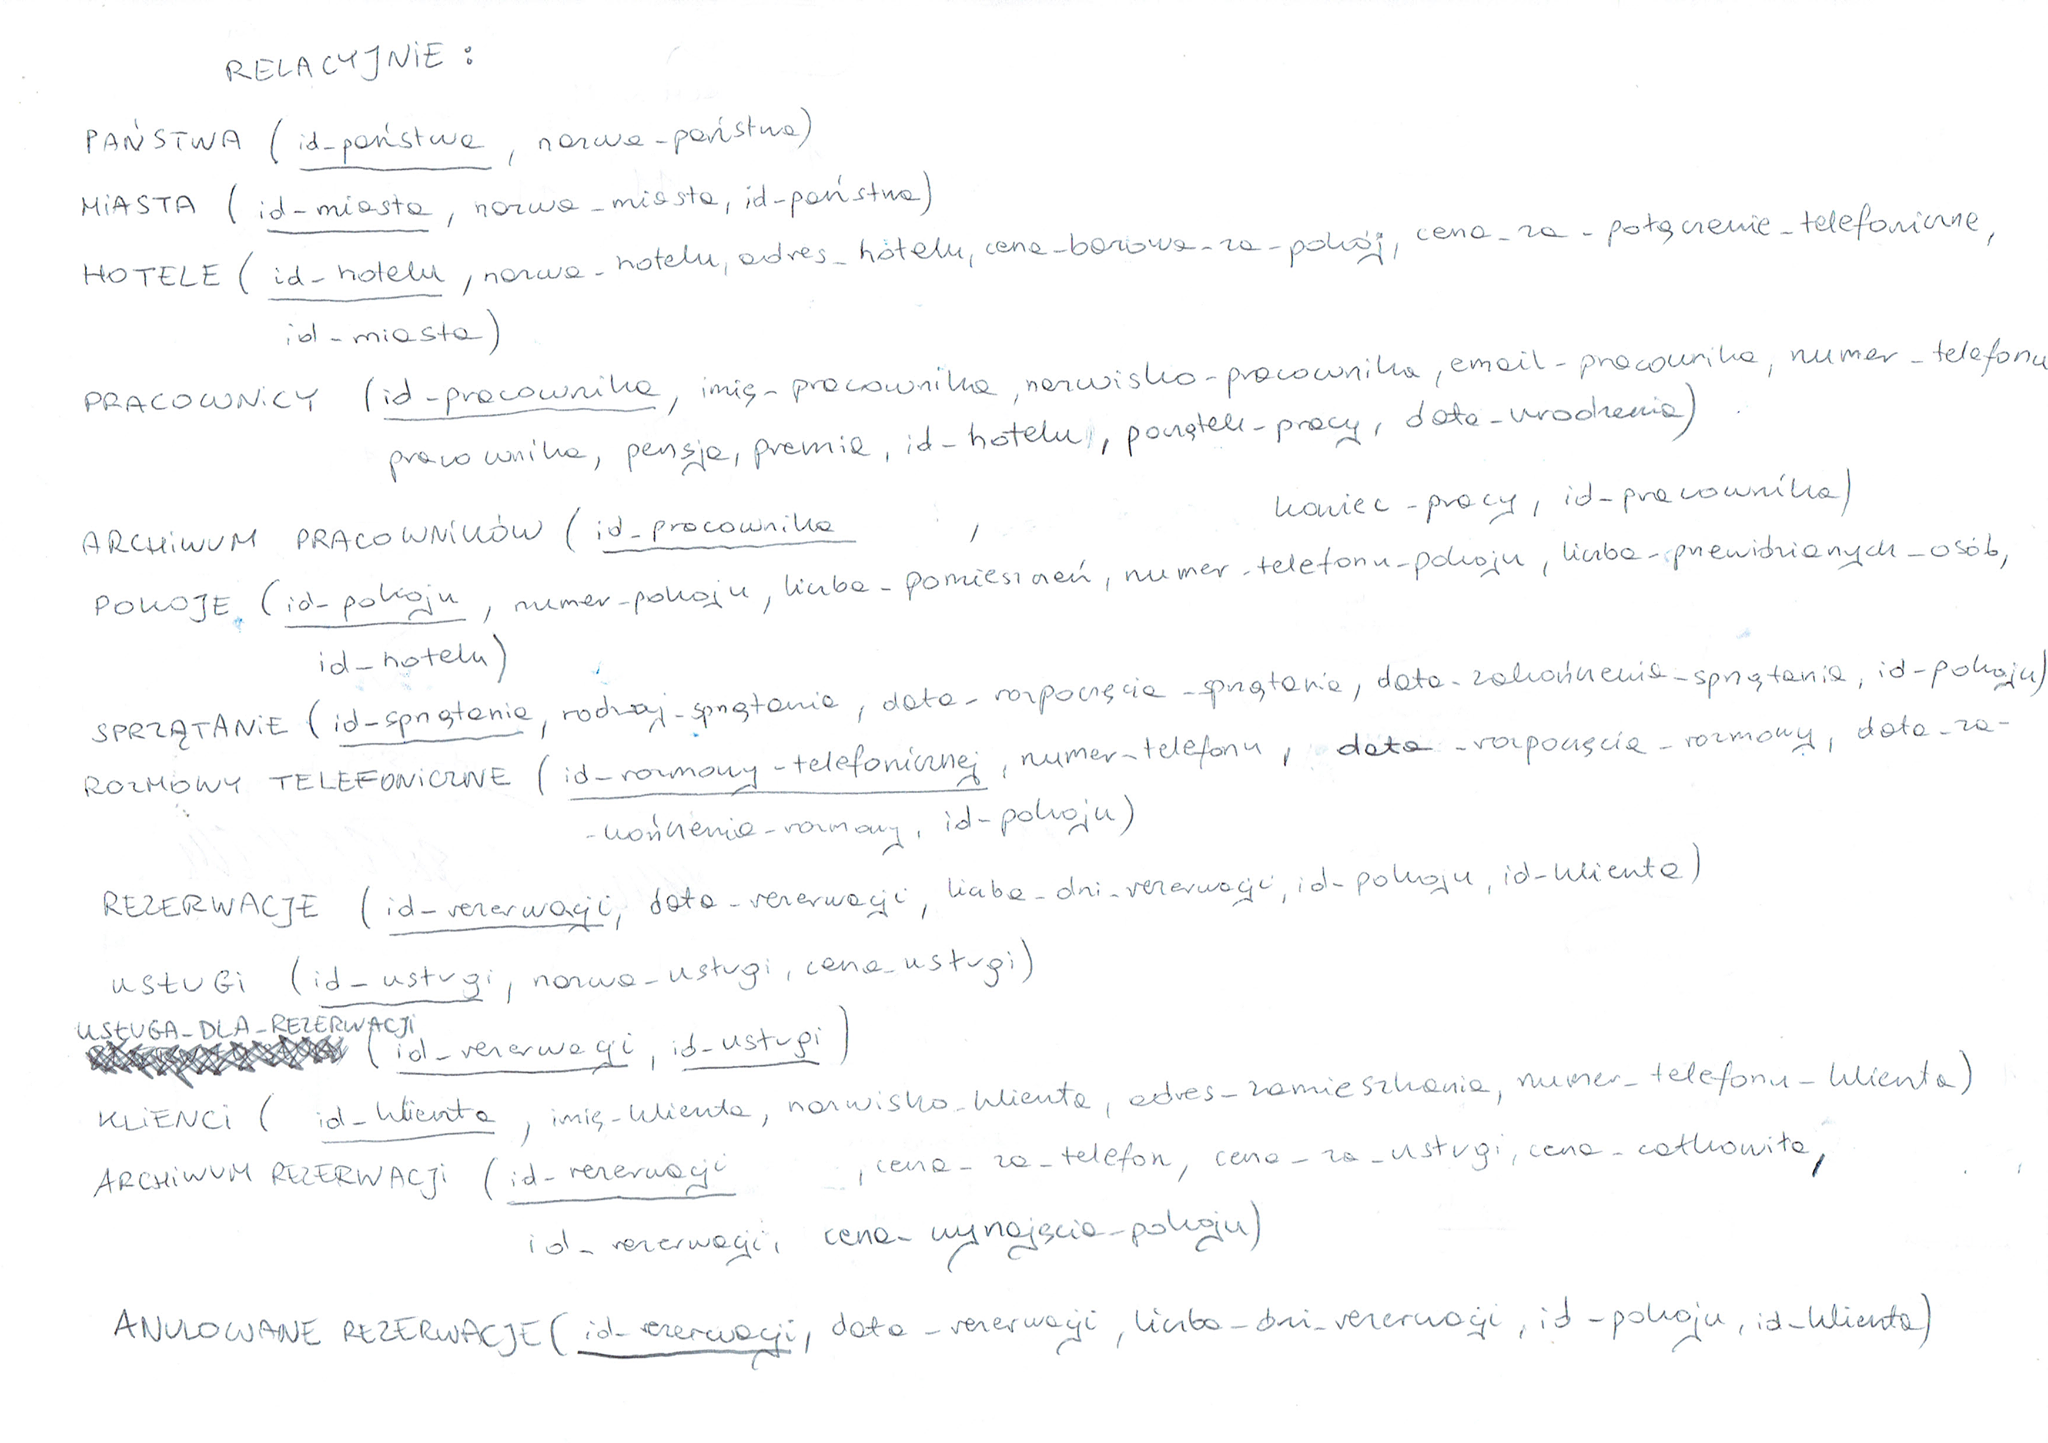 RELACYJNIE:
PAŃSTWA (id_państwa, nazwa_państwa)
MIASTA (id_miasta, nazwa_miasta, id_państwa)
HOTELE (id_hotelu, nazwa_hotelu, adres_hotelu, cena_bazowa_za_pokój, cena_za_połączenie_telefoniczne,
id_miasta)
PRACOWNICY (id_pracownika, imię_pracownika, nazwisko_pracownika, email_pracownika, numer_telefonu
pracownika, pensja, premia, id_hotelu, początek_pracy, data_urodzenia)
ARCHIWUM PRACOWNIKÓW (id_pracownika, koniec_pracy, id_pracownika)
POKOJE (id_pokoju, numer_pokoju, liczba_pomieszczeń, numer_telefonu_pokoju, liczba_przewidzianych_osób,
id_hotelu)
SPRZĄTANIE (id_sprzątania, rodzaj_sprzątania, data_rozpoczęcia_sprzątania, data_zakończenia_sprzątania, id_pokoju)
ROZMOWY TELEFONICZNE (id_rozmowy_telefonicznej, numer_telefonu, data_rozpoczęcia_rozmowy, data_za-
-kończenia_rozmowy, id_pokoju)
REZERWACJE (id_rezerwacji, data_rezerwacji, liczba_dni_rezerwacji, id_pokoju, id_klienta)
USŁUGI (id_usługi, nazwa_usługi, cena_usługi)
USŁUGA_DLA_REZERWACJI (id_rezerwacji, id_usługi)
KLIENCI (id_klienta, imię_klienta, nazwisko_klienta, adres_zamieszkania, numer_telefonu_klienta)
ARCHIWUM REZERWACJI (id_rezerwacji, cena_za_telefon, cena_za_usługi, cena_całkowita,
id_rezerwacji, cena_wynajęcia_pokoju)
ANULOWANE REZERWACJE (id_rezerwacji, data_rezerwacji, liczba_dni_rezerwacji, id_pokoju, id_klienta)